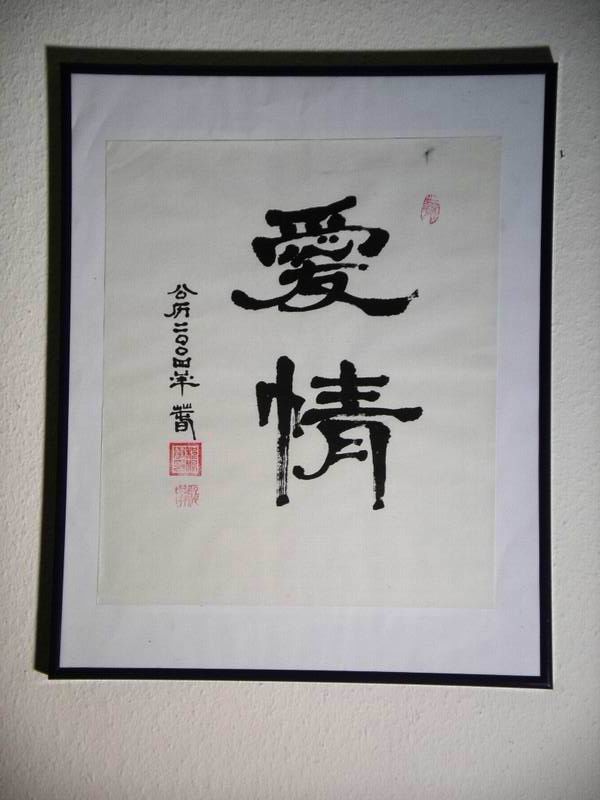 愛情
公历二〇〇四年春